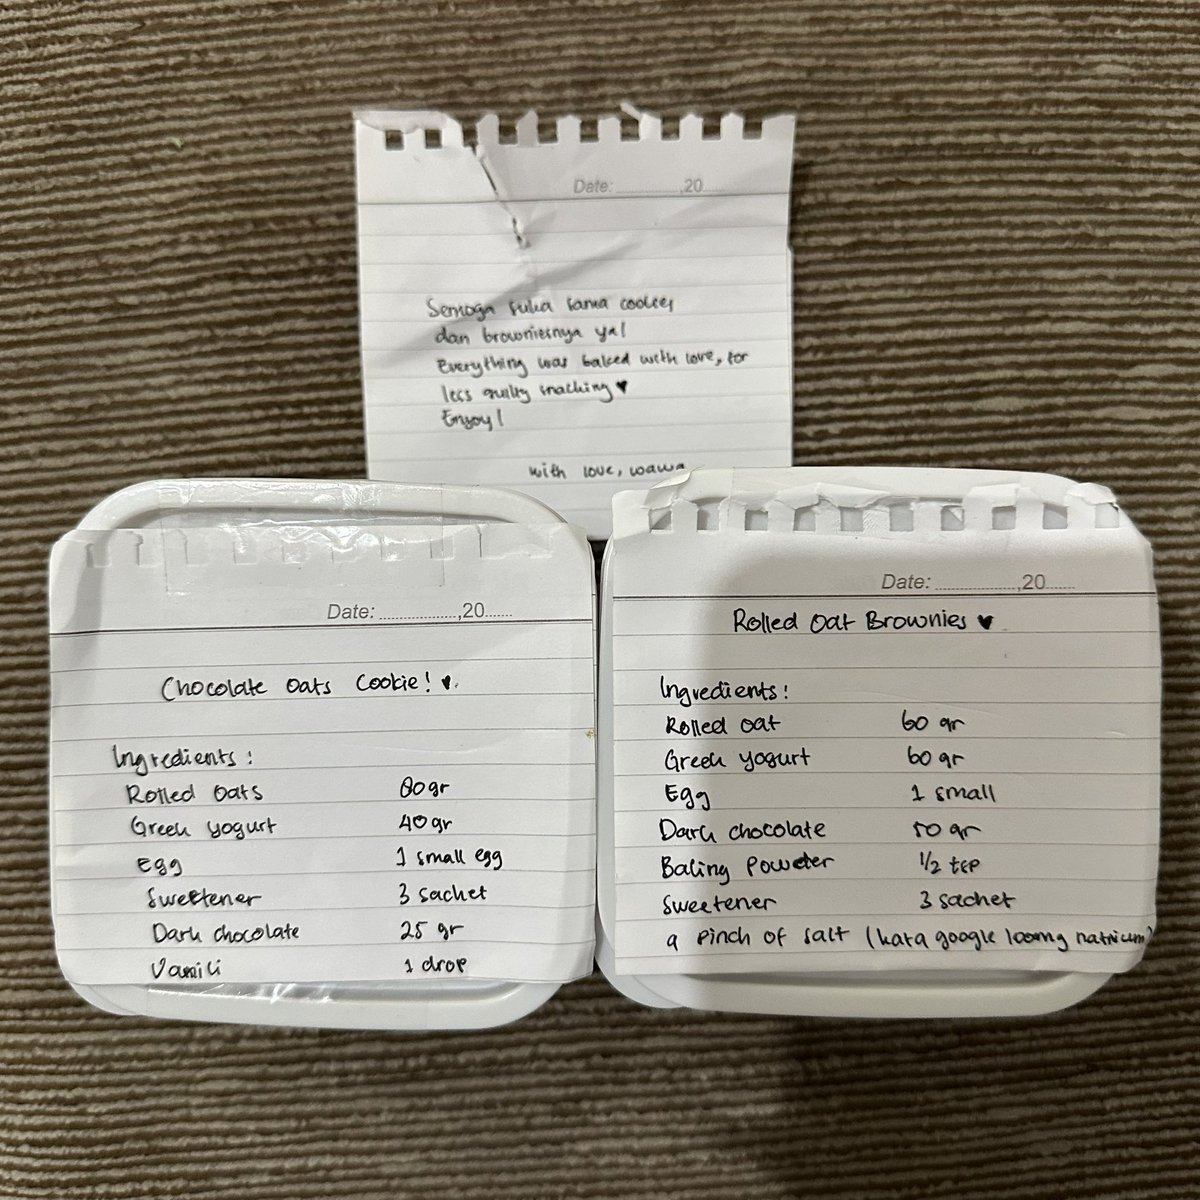 Date: ..................,20......
Semoga suka sama cookies
dan browniesnya ya!
Everything was baked with love, for
less guilty snacking ♥
Enjoy!
with love, wawa
Date: ..................,20......
Chocolate Oats Cookie! ♥.
Ingredients:
Rolled Oats 80 gr
Greek yogurt 40 gr
Egg 1 small egg
Sweetener 3 sachet
Dark chocolate 25 gr
Vanili 1 drop
Date: ..................,20......
Rolled Oat Brownies ♥
Ingredients:
Rolled oat 60 gr
Greek yogurt 60 gr
Egg 1 small
Dark chocolate 50 gr
Baking Powder 1/2 tsp
Sweetener 3 sachet
a pinch of salt (kata google 100mg natrium)